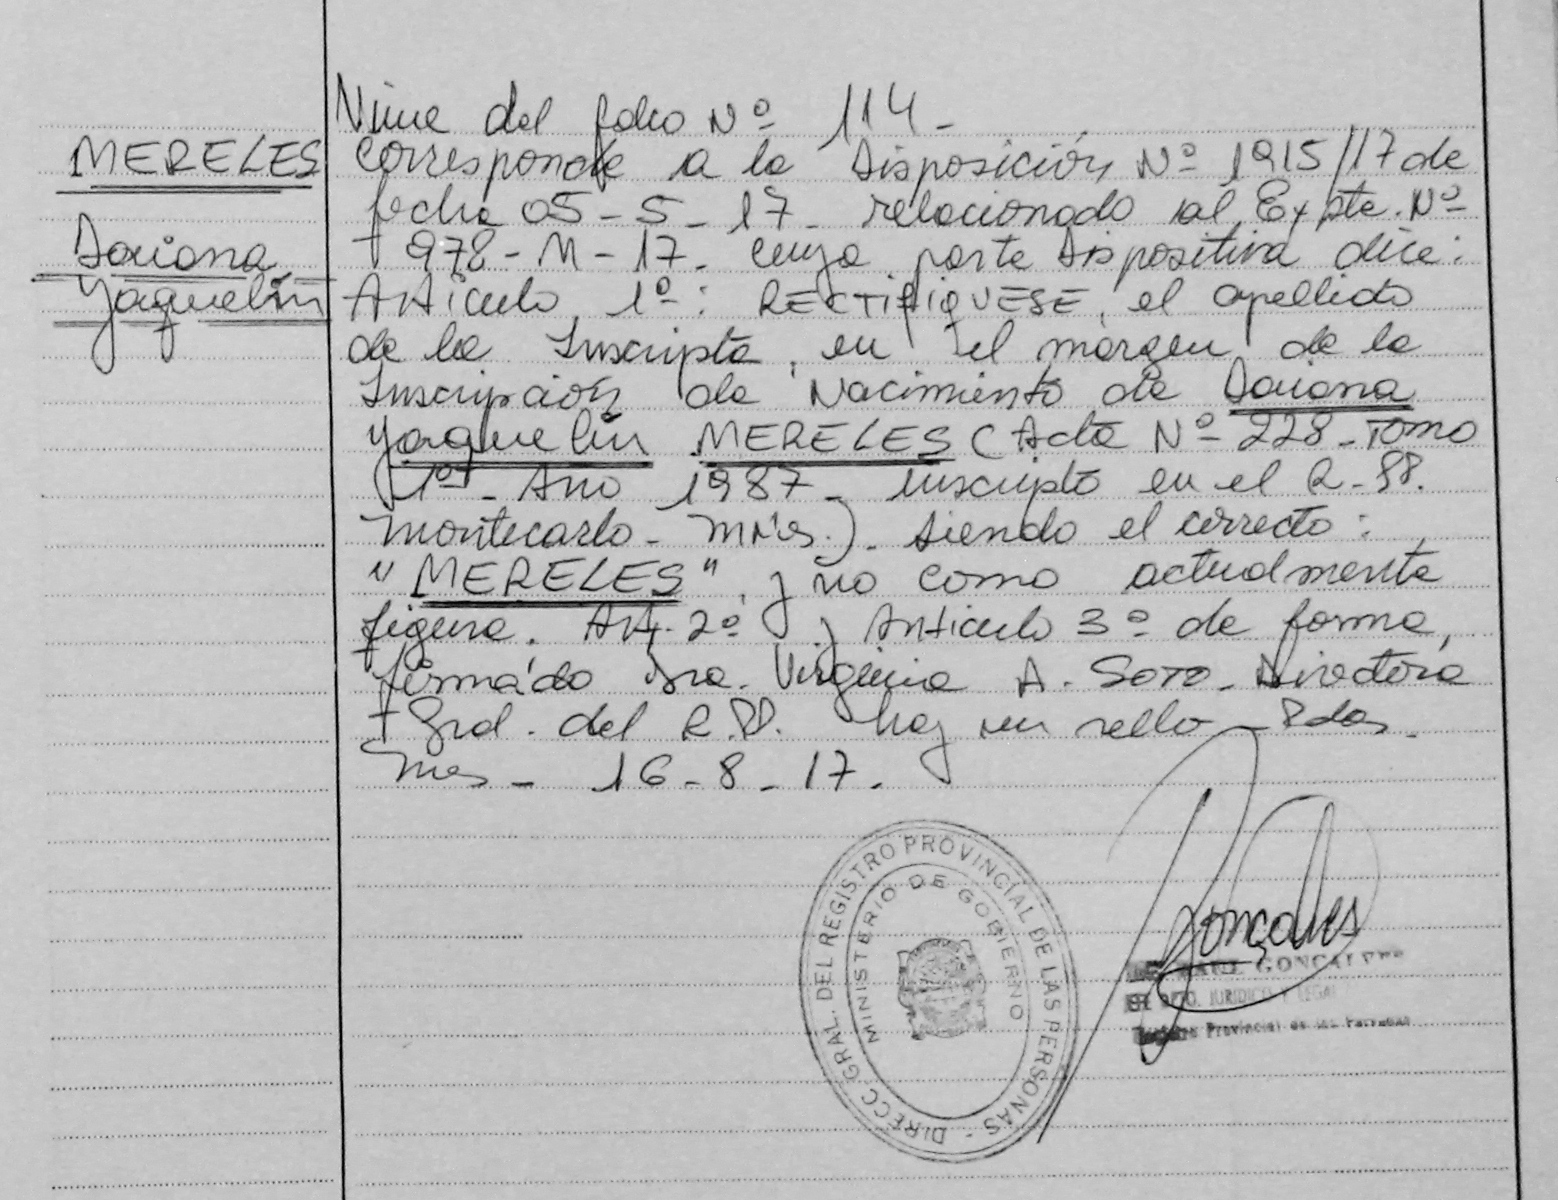 Viene del folio Nº 114-
MERELES
Dariana
Yaquelín
Corresponde a la Disposición Nº 1915/17 de
fecha 05-5-17 relacionado al Expte. Nº
978-M-17. cuya parte Dispositiva dice:
Artículo 1º: RECTIFIQUESE, el apellido
de la Inscripta, en el margen de la
Inscripción de Nacimiento de Dariana
Yaquelín MERELES (Acta Nº 228-Tomo
1º-Año 1987- inscripto en el R-PP.
Montecarlo- Mnes.)- siendo el correcto:
"MERELES", y no como actualmente
figura. Art. 2º y Artículo 3º de forma,
firmado Dra. Virginia A. SOTO-Directora
Gral. del R.PP. hay un sello-Pdas.
Mes- 16-8-17.
DIRECC. GRAL. DEL REGISTRO PROVINCIAL DE LAS PERSONAS -
MINISTERIO DE GOBIERNO
Gonçalves
GONCALVES
DPTO. JURIDICO Y LEGAL
Registro Provincial de las Personas